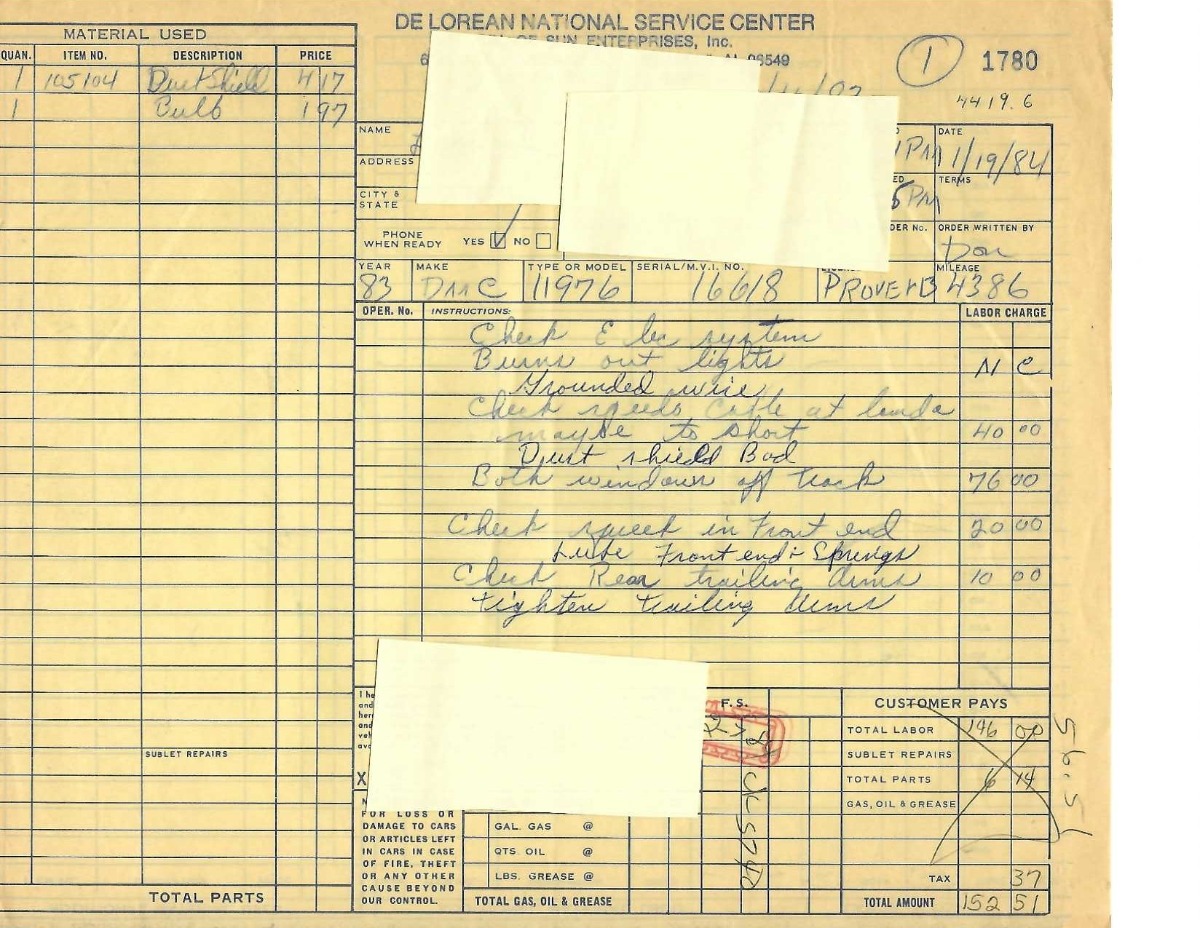 DE LOREAN NATIONAL SERVICE CENTER
OF SUN ENTERPRISES, Inc.
06549
1 1780
4419.6
MATERIAL USED
QUAN. ITEM NO. DESCRIPTION PRICE
1 105104 Dust Shield 4 17
1 Bulb 1 97
NAME
DATE
1/19/84
ADDRESS
TERMS
5 PM
CITY & STATE
DER No. ORDER WRITTEN BY
Don
PHONE WHEN READY YES NO
YEAR MAKE TYPE OR MODEL SERIAL/M.V.I. NO. MILEAGE
83 DMC 11976 16618 PROVERB 4386
OPER. No. INSTRUCTIONS: LABOR CHARGE
Check Elec system
Burns out lights N C
Grounded wire
Check speedo cable at
maybe to short 40 00
Dust shield Bad
Both windows off track 76 00
Check squeek in Front end 20 00
Lube Front end + Springs
Check Rear trailing Arms 10 00
tighten trailing Arms
I he
and
her
and
veh
ava
X
F.S.
CUSTOMER PAYS
TOTAL LABOR 146 00
SUBLET REPAIRS
SUBLET REPAIRS
TOTAL PARTS 6 14
GAS, OIL & GREASE
FOR LOSS OR
DAMAGE TO CARS
OR ARTICLES LEFT
IN CARS IN CASE
OF FIRE, THEFT
OR ANY OTHER
CAUSE BEYOND
OUR CONTROL.
GAL. GAS @
QTS. OIL @
LBS. GREASE @
TOTAL GAS, OIL & GREASE
TAX 37
TOTAL AMOUNT 152 51
TOTAL PARTS